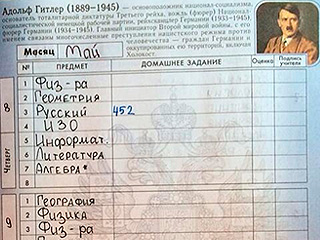 Адольф Гитлер (1889–1945) — основоположник национал-социализма,
основатель тоталитарной диктатуры Третьего рейха, вождь (фюрер) Национал-
социалистической немецкой рабочей партии, рейхсканцлер Германии (1933–1945),
фюрер Германии (1934–1945), инициатор Второй мировой войны, с его
именем связаны многочисленные преступления нацистского режима против
человечества — граждан Германии и
оккупированных ею территорий, включая
Холокост.
Месяц Май
№ ПРЕДМЕТ ДОМАШНЕЕ ЗАДАНИЕ Оценка Подпись учителя
8
ЧЕТВЕРГ
1 Физ-ра
2 Геометрия
3 Русский 452
4 ИЗО
5 Информат.
6 Литература
7 Алгебра*
9
1 География
2 Физика
3 Физ-ра